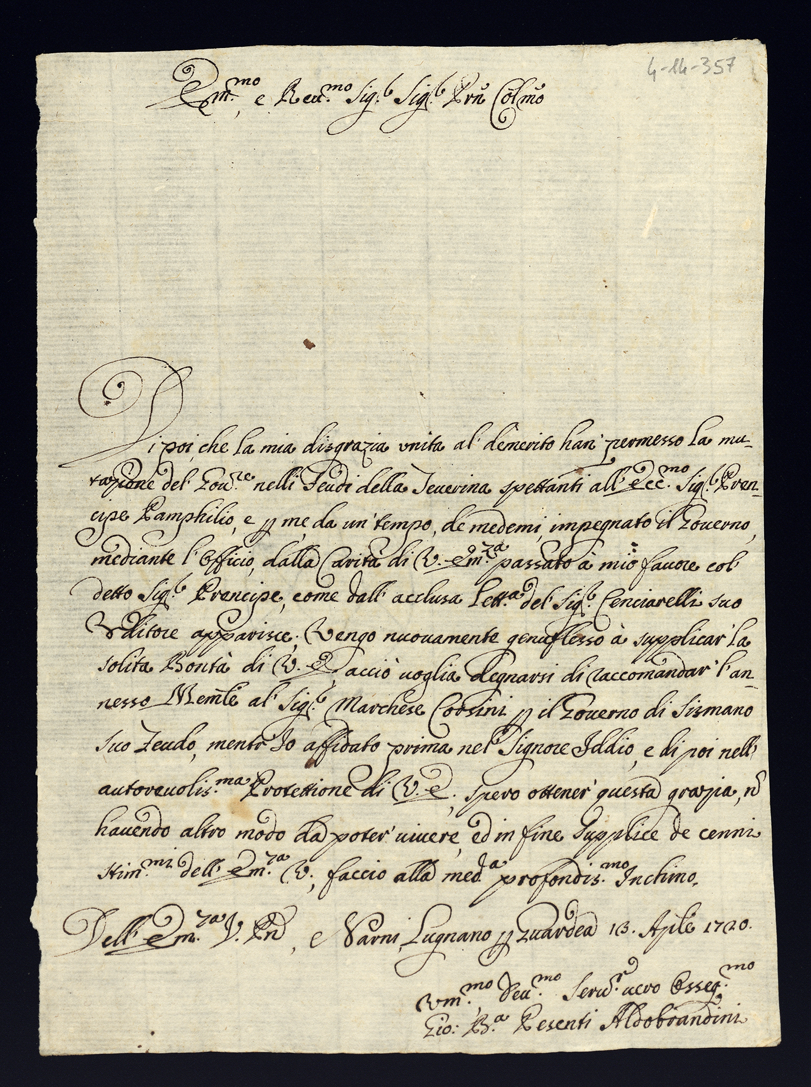 4-14-357
Em.mo, e Reu.mo Sig.r Sig.r Prñ Colmo
Di poi che la mia disgrazia unita al' demerito han' permesso la mu-
tazione del' Gou.re nelli Feudi della Teuerina spettanti all' Ecc.mo Sig.r Pren-
cipe Pamphilio, e p me da un' tempo, de medemi, impegnato il Gouerno,
mediante l'Officio, dalla Carità di V. Em.za passato à mio fauore col'
detto Sig.r Prencipe, come dall' acclusa Lett.a del' Sig.r Cenciarelli suo
Uditore apparisce, Vengo nuouamente genuflesso à supplicar' la
solita Bontà di V. E. acciò uoglia degnarsi di raccomandar' l'an-
nesso Memle al' Sig.r Marchese Corsini p il Gouerno di Sismano
suo Feudo, mentr' Io affidato prima nel' Signore Iddio, e di poi nell'
autoreuolis.ma Protettione di V. E., spero ottener' questa grazia, ñ
hauendo altro modo da poter' uiuere, ed in fine Supplice de cenni
stim.mi dell' Em.za V., faccio alla med.a profondis.mo Inchino.
Dell' Em.za V. Prñ, e Narni Lugnano p Guardea 13. Aplē 1720.
Vm.mo Deu.mo Seru.re uero Osseq.mo
Gio: B.a Pesenti Aldobrandini